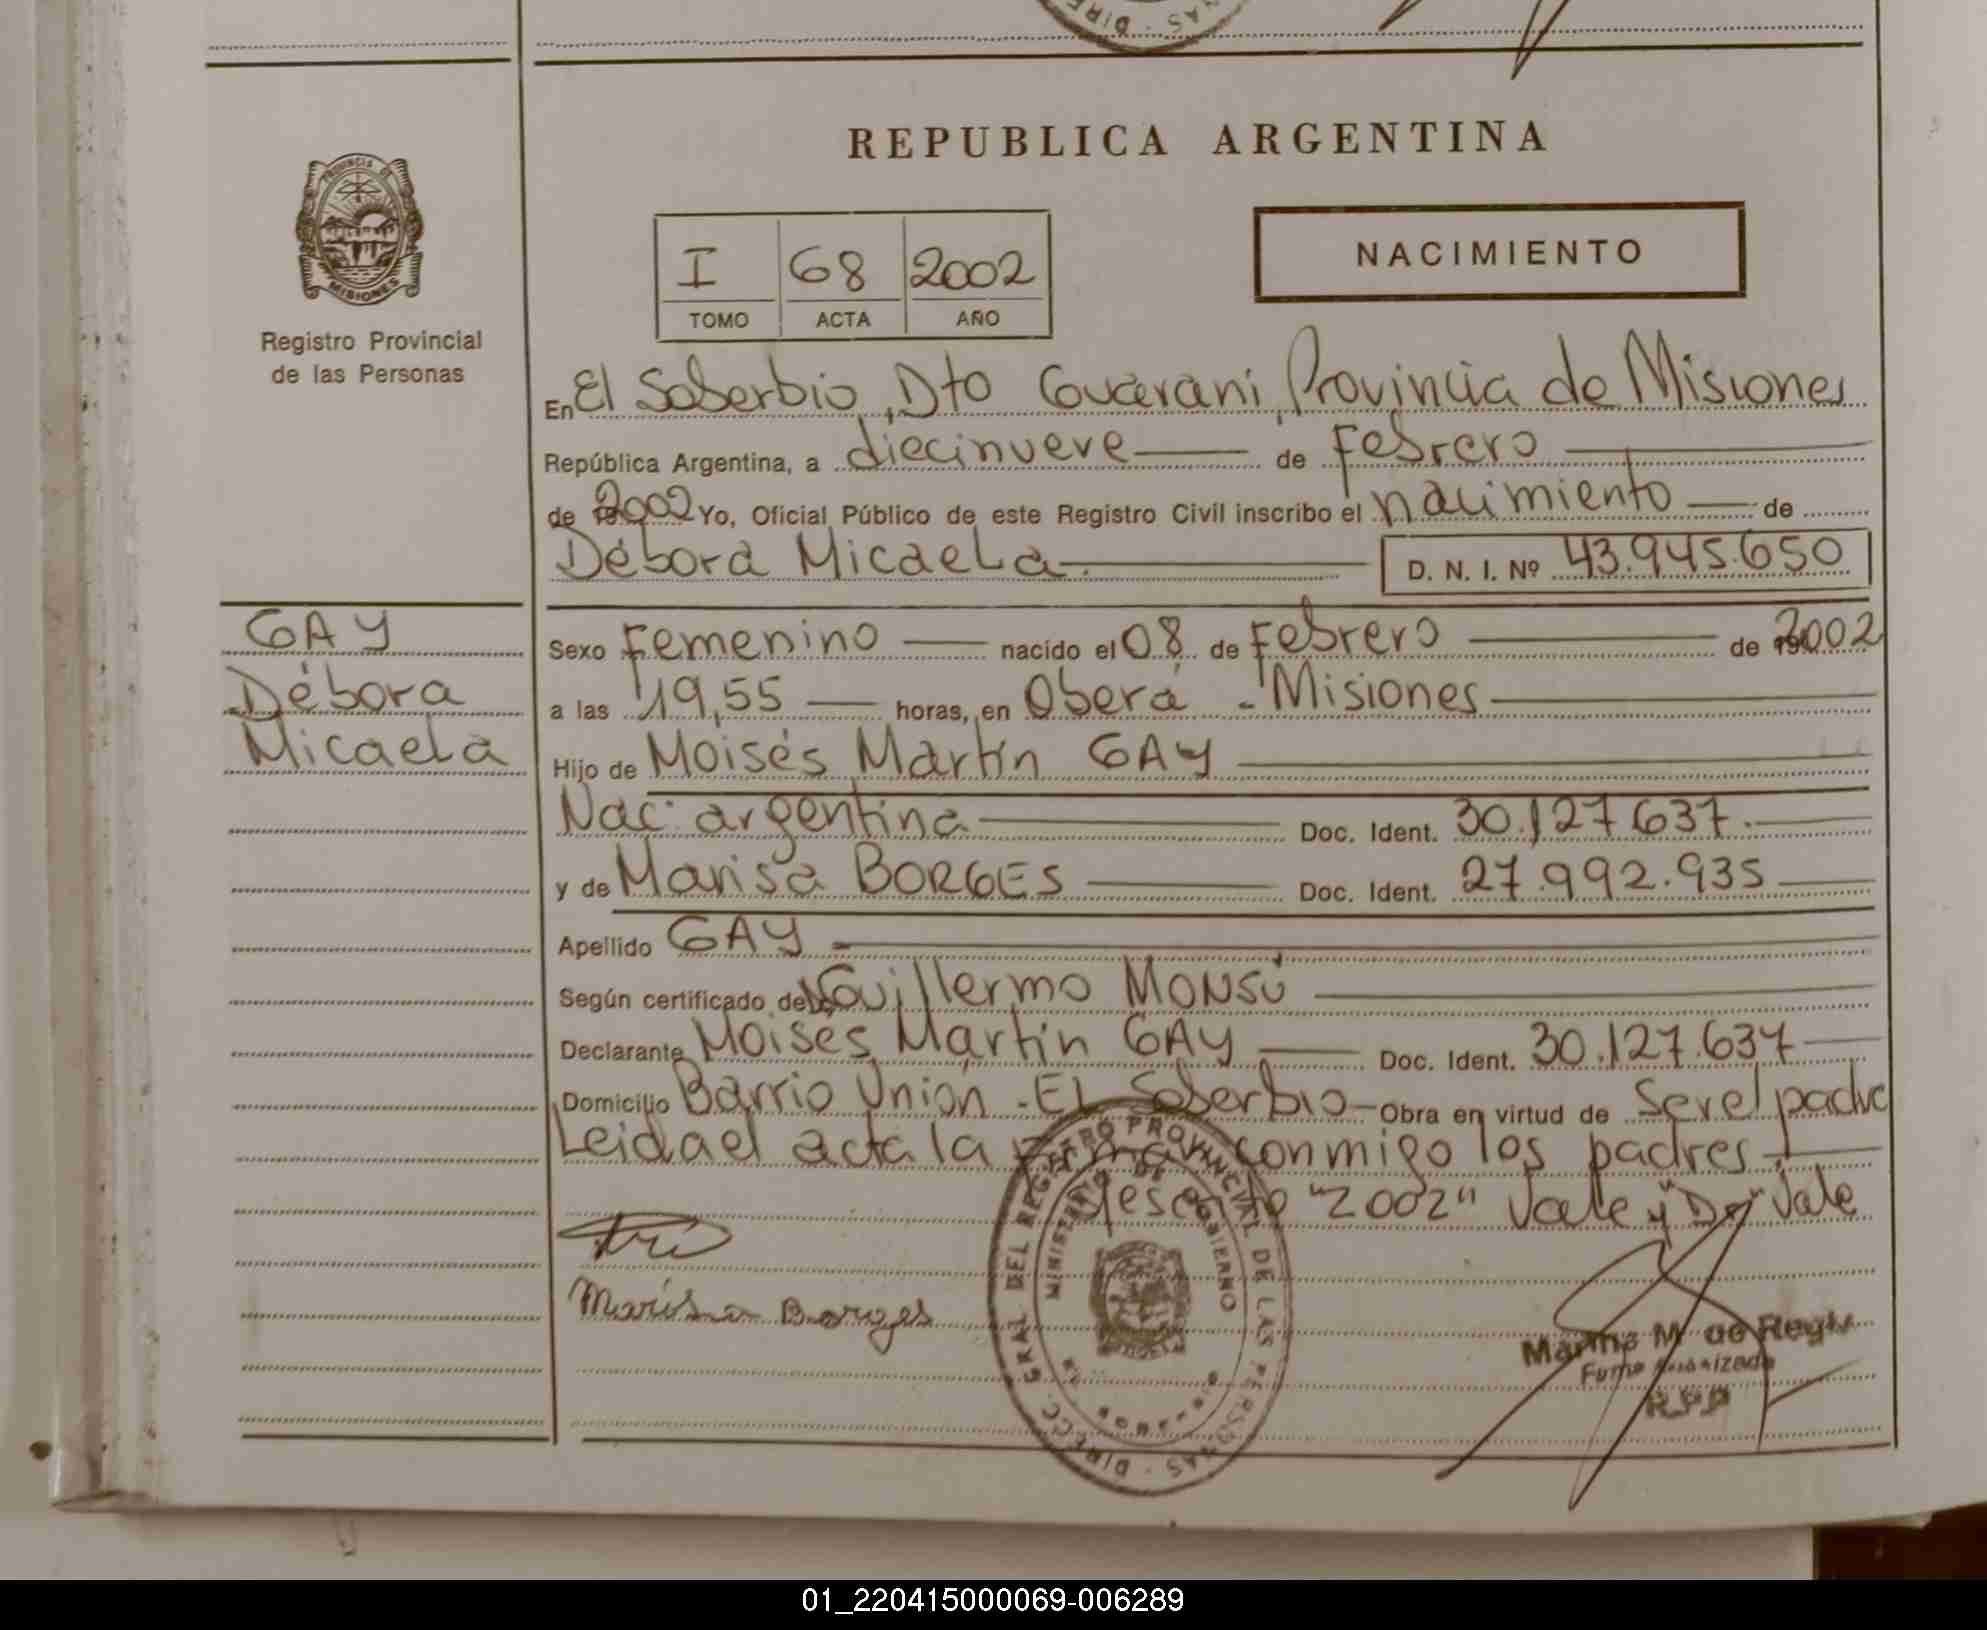 REPUBLICA ARGENTINA
PROVINCIA DE
MISIONES
Registro Provincial
de las Personas
I 68 2002
TOMO ACTA AÑO
NACIMIENTO
En El Soberbio, Dto Guarani, Provincia de Misiones
República Argentina, a diecinueve de Febrero
de 2002 Yo, Oficial Público de este Registro Civil inscribo el nacimiento de
Débora Micaela. D. N. I. Nº 43.945.650
GAY
Débora
Micaela
Sexo Femenino nacido el 08 de Febrero de 2002
a las 19,55 horas, en Oberá - Misiones
Hijo de Moisés Martín GAY
Nac. argentina Doc. Ident. 30.127.637.
y de Marisa BORGES Doc. Ident. 27.992.935
Apellido GAY
Según certificado de Guillermo MONSÚ
Declarante Moises Martín GAY Doc. Ident. 30.127.637
Domicilio Barrio Unión - El Soberbio Obra en virtud de Ser el padre
Leida el acta la firman conmigo los padres.
"2002" Vale y "Dr" Vale
Marisa Borges
DIRECC. GRAL DEL REGISTRO PROVINCIAL DE LAS PERSONAS
MINISTERIO DE GOBIERNO
R.P.P
DIRE NAS
01_220415000069-006289